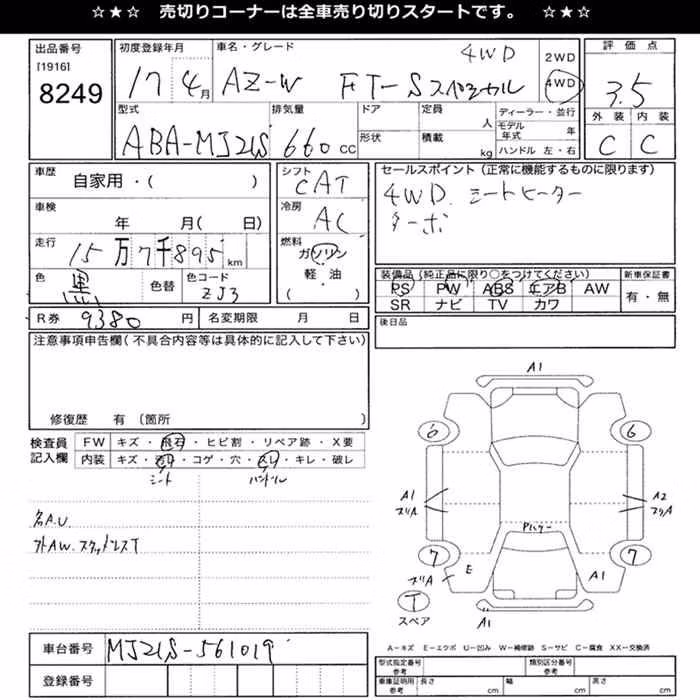 ☆★☆ 売切りコーナーは全車売り切りスタートです。 ☆★☆
出品番号
[1916]
8249
初度登録年月
17 4月
車名・グレード
4WD
AZ-W FT-Sスペシャル
2WD
4WD
評価点
3.5
外装 内装
C C
型式
ABA-MJ21S
排気量
660cc
ドア
形状
定員
人
積載
kg
ディーラー・並行
モデル年式 年
ハンドル 左・右
車歴
自家用・( )
車検
年 月( 日)
走行
15万7千895km
色
黒
色替
色コード
ZJ3
シフト
CAT
冷房
AC
燃料
ガソリン
軽・油
( )
セールスポイント(正常に機能するものに限ります)
4WD. シートヒーター
ターボ
装備品(純正品に限り○をつけてください)
新車保証書
PS PW ABS エアB AW
SR ナビ TV カワ
有・無
R券 9380 円
名変期限 月 日
後日品
注意事項申告欄(不具合内容等は具体的に記入して下さい)
修復歴 有〔箇所 〕
検査員
記入欄
FW キズ・飛石・ヒビ割・リペア跡・X要
内装 キズ・ ・コゲ・穴・スレ・キレ・破レ
シート ハンドル
名A.U.
外AW.スタッドレスT
A1
6 6
A1
スリA
A2
スリA
Pハケー
7 7
スリA
E
A1
T
スペア
A1
A-キズ E-エクボ U-凹み W-補修跡 S-サビ C-腐食 XX-交換済
車台番号 MJ21S-561019
登録番号
型式指定番号
参考
類別区分番号
参考
車庫証明用
参考
長さ cm 幅 cm 高さ cm